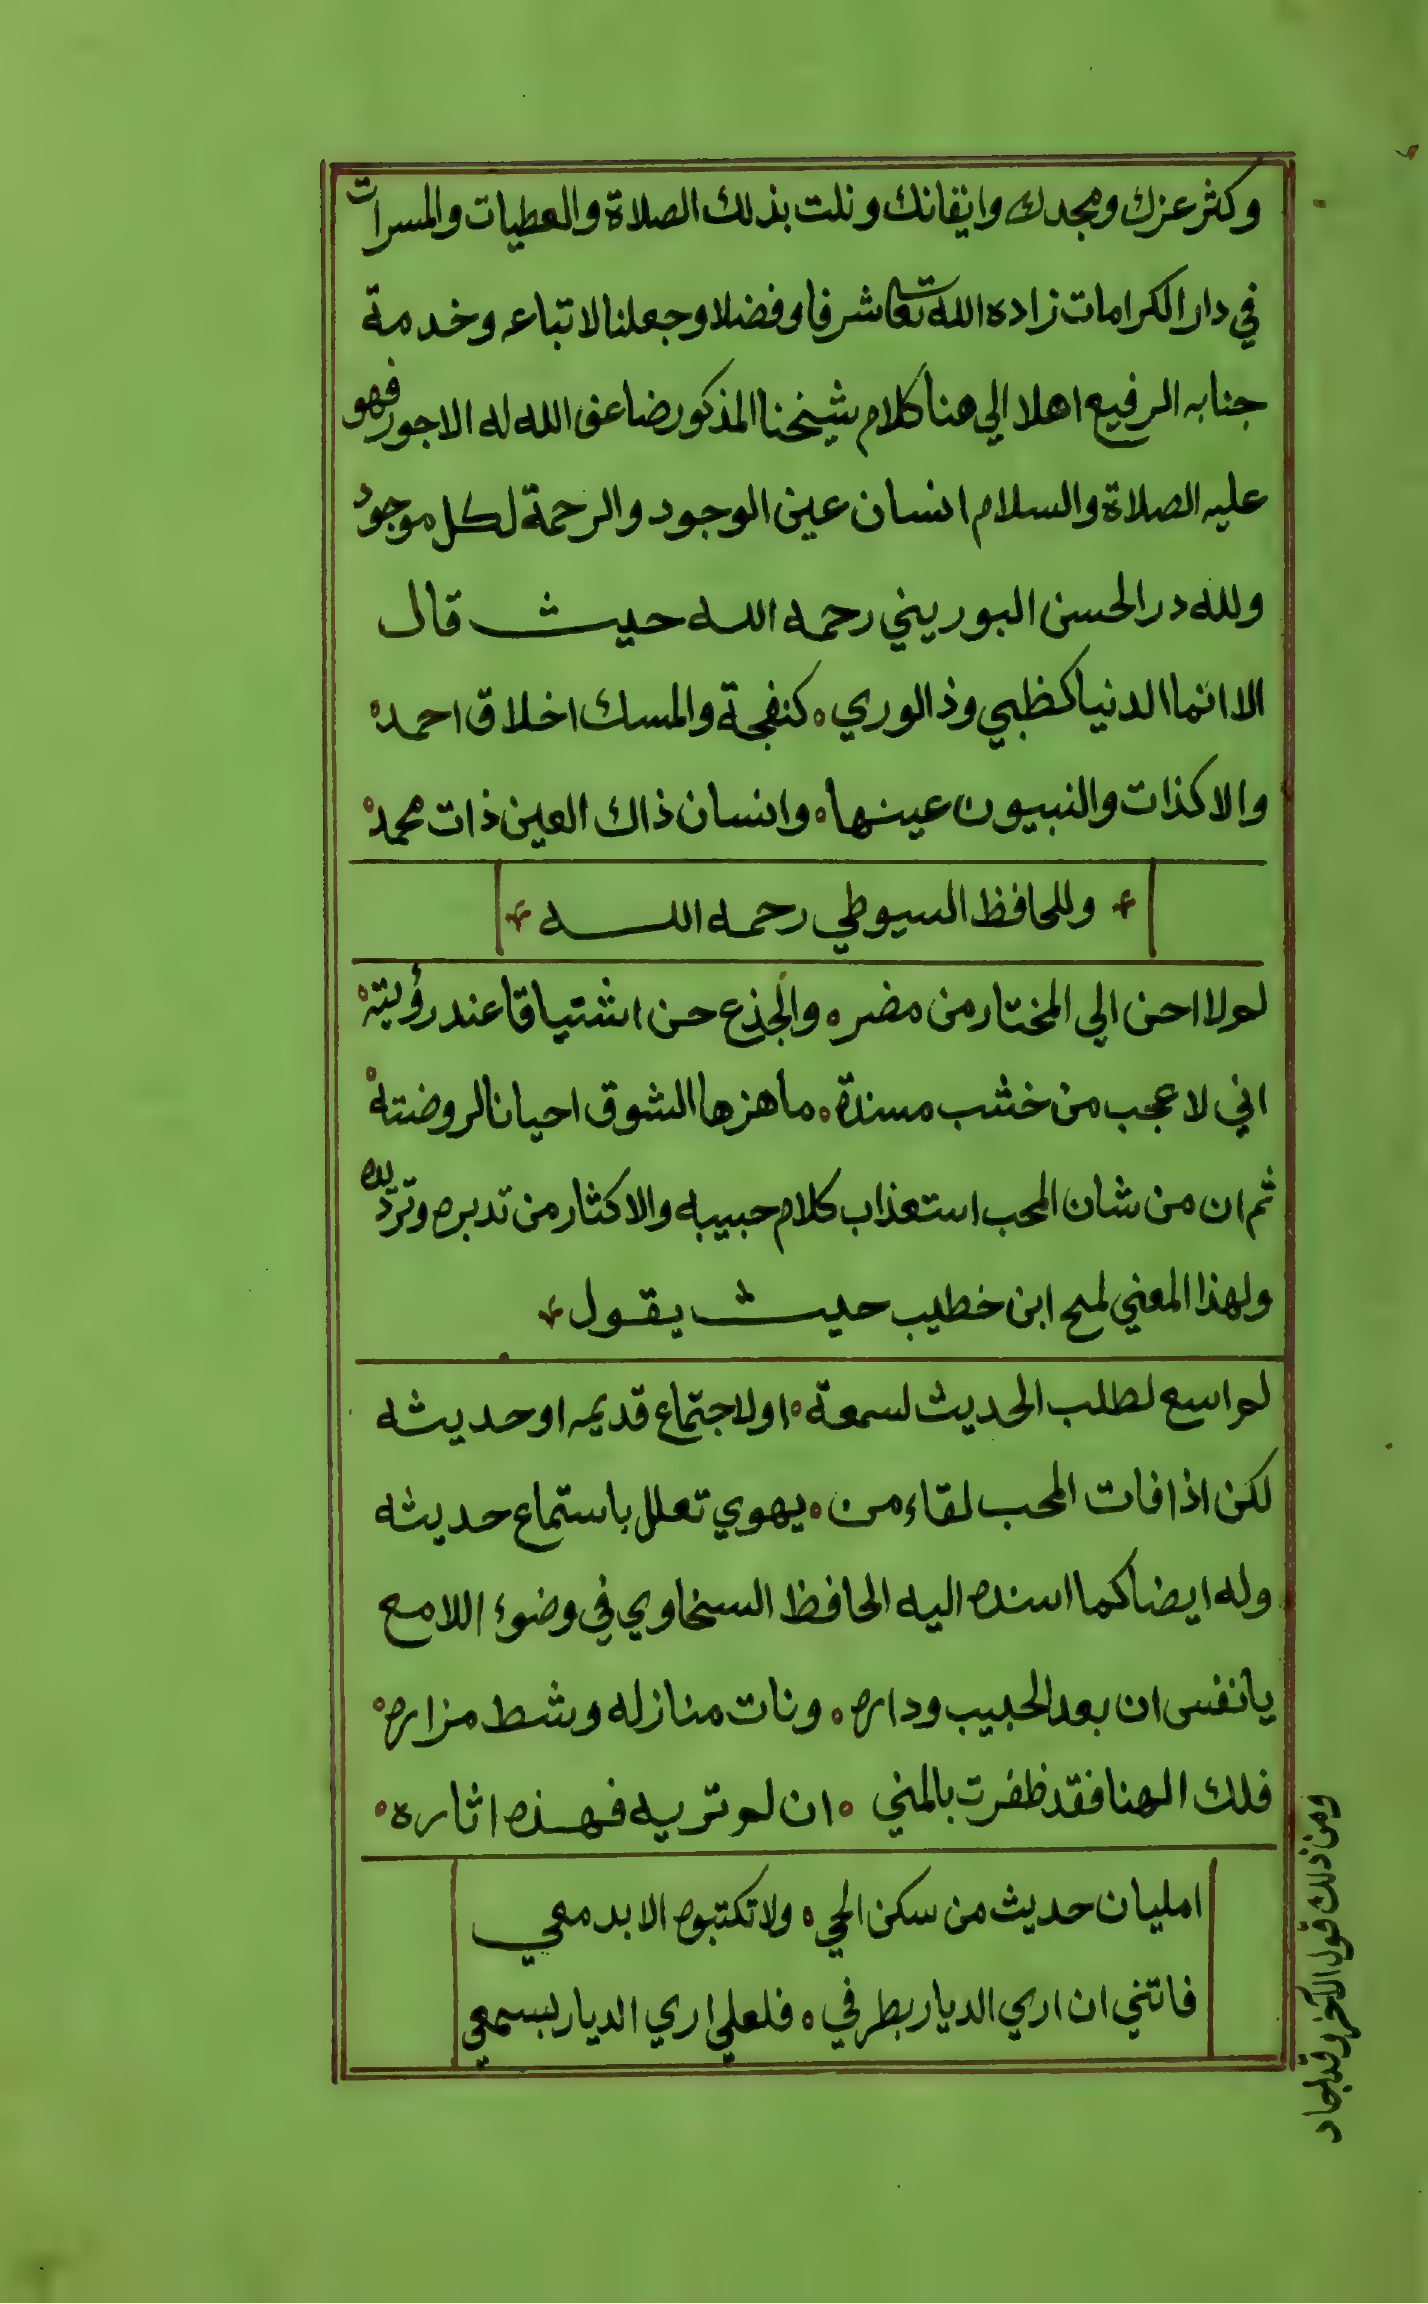 وكثر عزك ومجدك وايقانك ونلت بذلك الصلاة والعطيات والمسرات
في دار الكرامات زاده الله تعا شرفا وفضلا وجعلنا لاتباعه وخدمة
جنابه الرفيع اهلا الي هنا كلام شيخنا المذكور ضاعف الله له الاجور فهو
عليه الصلاة والسلام انسان عين الوجود والرحمة لكل موجود
ولله در الحسن البوريني رحمه الله حيث قال
الا انما الدنيا كظبي وذالوري ه كنفجة والمسك اخلاق احمد ه
والا كذات والنبيون عينها ه وانسان ذاك العين ذات محمد ه
وللحافظ السيوطي رحمه الله
لولا احن الي المختار من مضر ه والجذع حن اشتياقا عند رؤيته ه
اني لاعجب من خشب مسندة ه ما هزها الشوق احيانا لروضته ه
ثم ان من شان المحب استعذاب كلام حبيبه والاكثار من تدبره وتردّيده
ولهذا المعني لمح ابن خطيب حيث يقول
لم اسع لطلب الحديث لسمعة ه او لاجتماع قديمه او حديثه
لكن اذا فات المحب لقاء من ه يهوي تعلل باستماع حديثه
وله ايضا كما اسنده اليه الحافظ السخاوي في وضوء اللامع
يا نفس ان بعد الحبيب وداره ه ونات منازله وشط مزاره ه
فلك الهنا فقد ظفرت بالمني ه ان لم تريه فهذه اثاره ه
امليان حديث من سكن الحي ه ولا تكتبوه الا بدمعي
فاتني ان اري الديار بطرفي ه فلعلي اري الديار بسمعي
ومن ذلك قول الآخر وقد اجاد